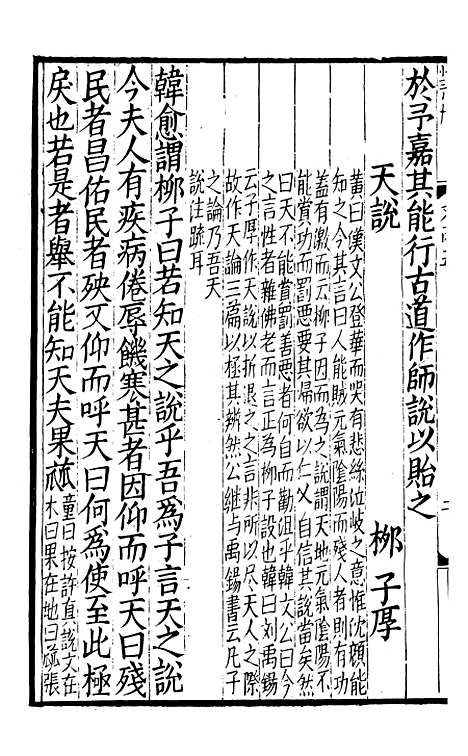 於予嘉其能行古道作師說以貽之
天說 栁子厚
黄曰漢文公登華而哭有悲絲泣岐之意惟沈顔能
知之今其言曰人能賊元氣隂陽而殘人者則有功
蓋有激而云栁子因而為之說謂天地元氣隂陽不
能賞功而罰惡要其歸欲以仁義自信其說當矣然
曰天不能賞罰善惡者何自而勸沮乎韓文公曰今
之言性者雜佛老而言正為栁子設也韓曰刘禹錫
云子厚作天說以折退之之言非所以尽天人之際
故作天論三篇以極其辨然公继与禹錫書云凡子
之論乃吾天
說注疏耳
韓愈謂栁子曰若知天之說乎吾為子言天之說
今夫人有疾病倦辱饑寒甚者因仰而呼天曰殘
民者昌佑民者殃又仰而呼天曰何為使至此極
戾也若是者舉不能知天夫果蓏童曰按許真說文在
木曰果在地曰蓏張